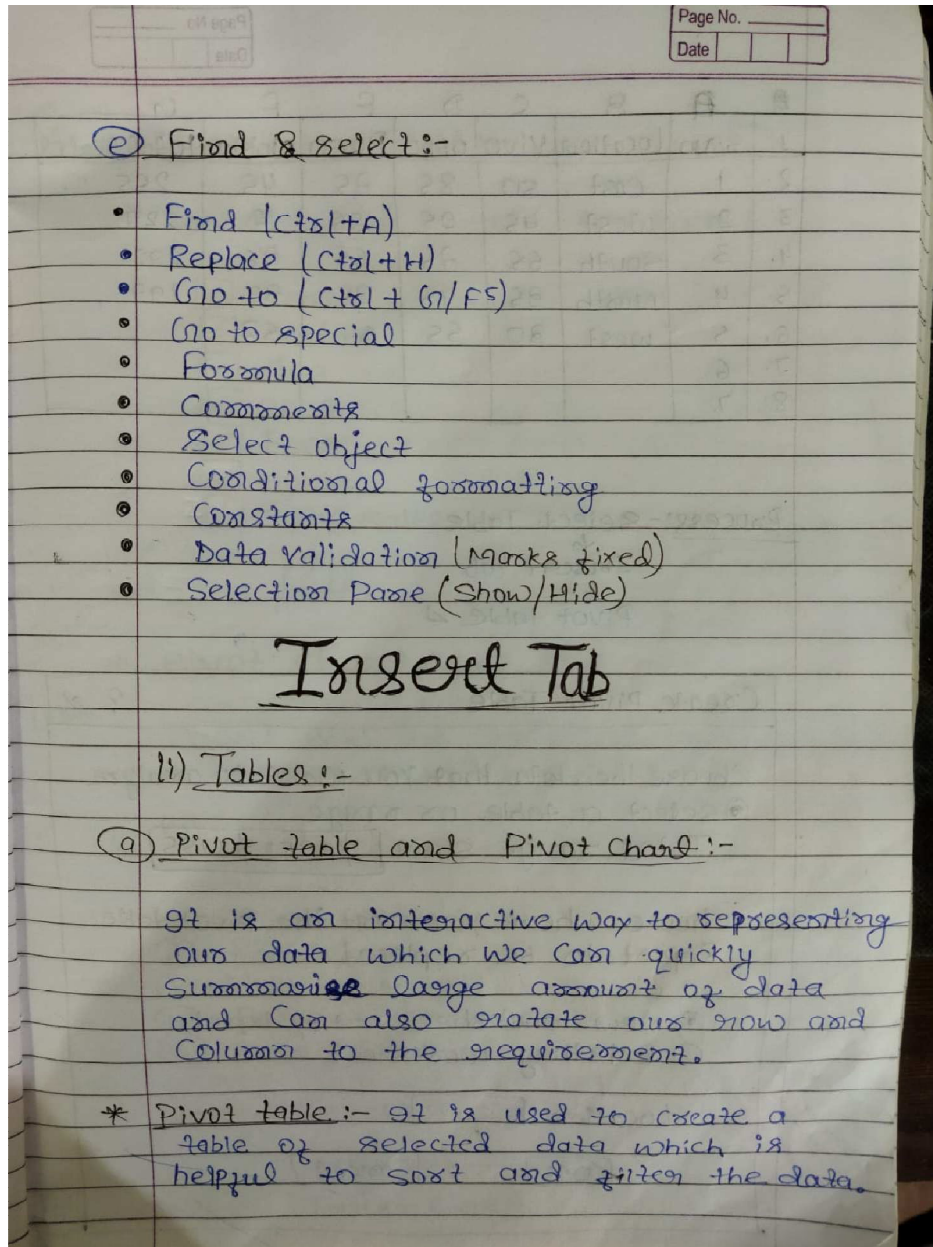 Page No.
Date
(e) Find & Select :-
• Find (Ctrl+A)
• Replace (Ctrl+H)
• Go to (Ctrl + G/F5)
• Go to special
• Formula
• Comments
• Select object
• Conditional formatting
• Constants
• Data validation (Marks fixed)
• Selection Pane (Show/Hide)
Insert Tab
(i) Tables :-
(a) Pivot table and Pivot Chart :-
It is an interactive way to representing
our data which we can quickly
Summarise large amount of data
and Can also rotate our row and
Column to the requirement.
* Pivot table :- It is used to create a
table of selected data which is
helpful to sort and filter the data.